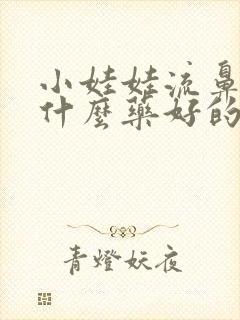 小娃娃流鼻
什麼藥好的
青燈妖夜